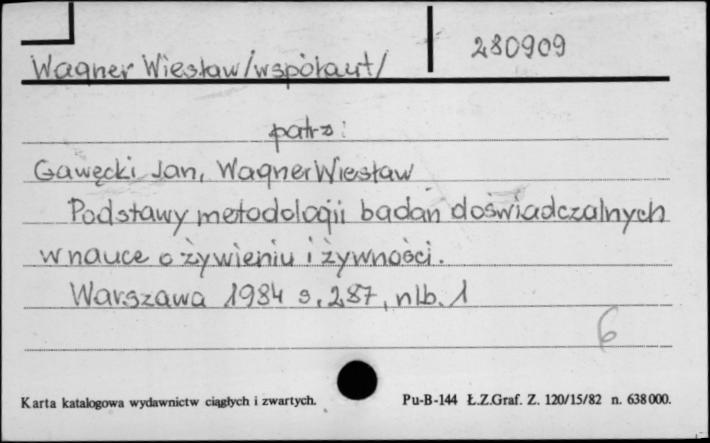 280909
Wagner Wiesław/współaut/
patrz:
Gawęcki Jan, Wagner Wiesław
Podstawy metodologii badań doświadczalnych
w nauce o żywieniu i żywności.
Warszawa 1984 s. 287, nlb. 1
6
Karta katalogowa wydawnictw ciągłych i zwartych. Pu-B-144 Ł.Z.Graf. Z. 120/15/82 n. 638000.